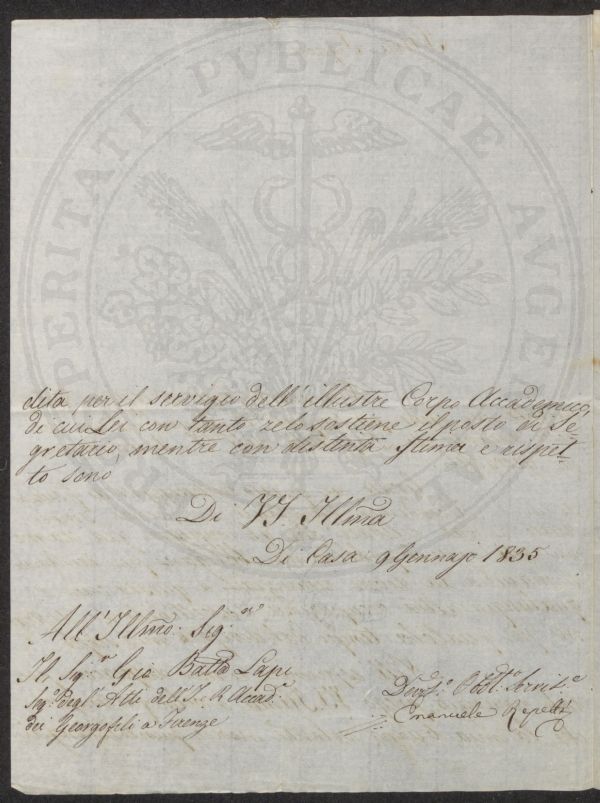 PROSPERITATI PVBLICAE AVGENDAE
dita per il servigio dell'illustre Corpo Accademico
di cui Lei con tanto zelo sostiene il posto di Se-
gretario, mentre con distinta stima e rispet-
to sono
Di VS Illma
Di Casa 9 Gennajo 1835
All' Illmo. Sig.re
Il Sig.r Gio Batta Lapi
Seg.o degl' Atti dell' I. R. Accad.a
dei Georgofili a Firenze
Dev.mo Obbl.o Servit.e
Emanuele Repetti